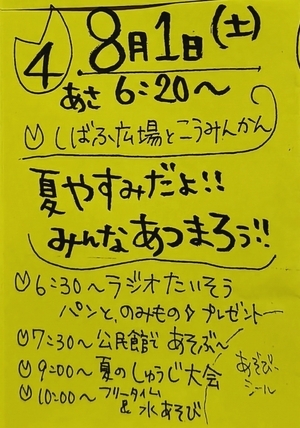 ④ 8月1日(土)
あさ 6:20～
しばふ広場とこうみんかん
夏やすみだよ!!
みんなあつまろう!!
6:30～ラジオたいそう
パンと、のみものプレゼント
7:30～公民館であそぶ～
9:00～夏のしゅうじ大会
あそび、シール
10:00～フリータイム
&水あそび